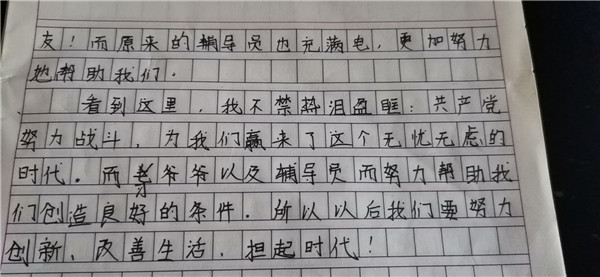 友！而原来的辅导员也充满电，更加努力
地帮助我们．
看到这里，我不禁热泪盈眶：共产党
努力战斗，为我们赢来了这个无忧无虑的
时代．而爷爷以及辅导员而努力帮助我
们创造良好的条件．所以以后我们要努力
创新、改善生活，担起时代！